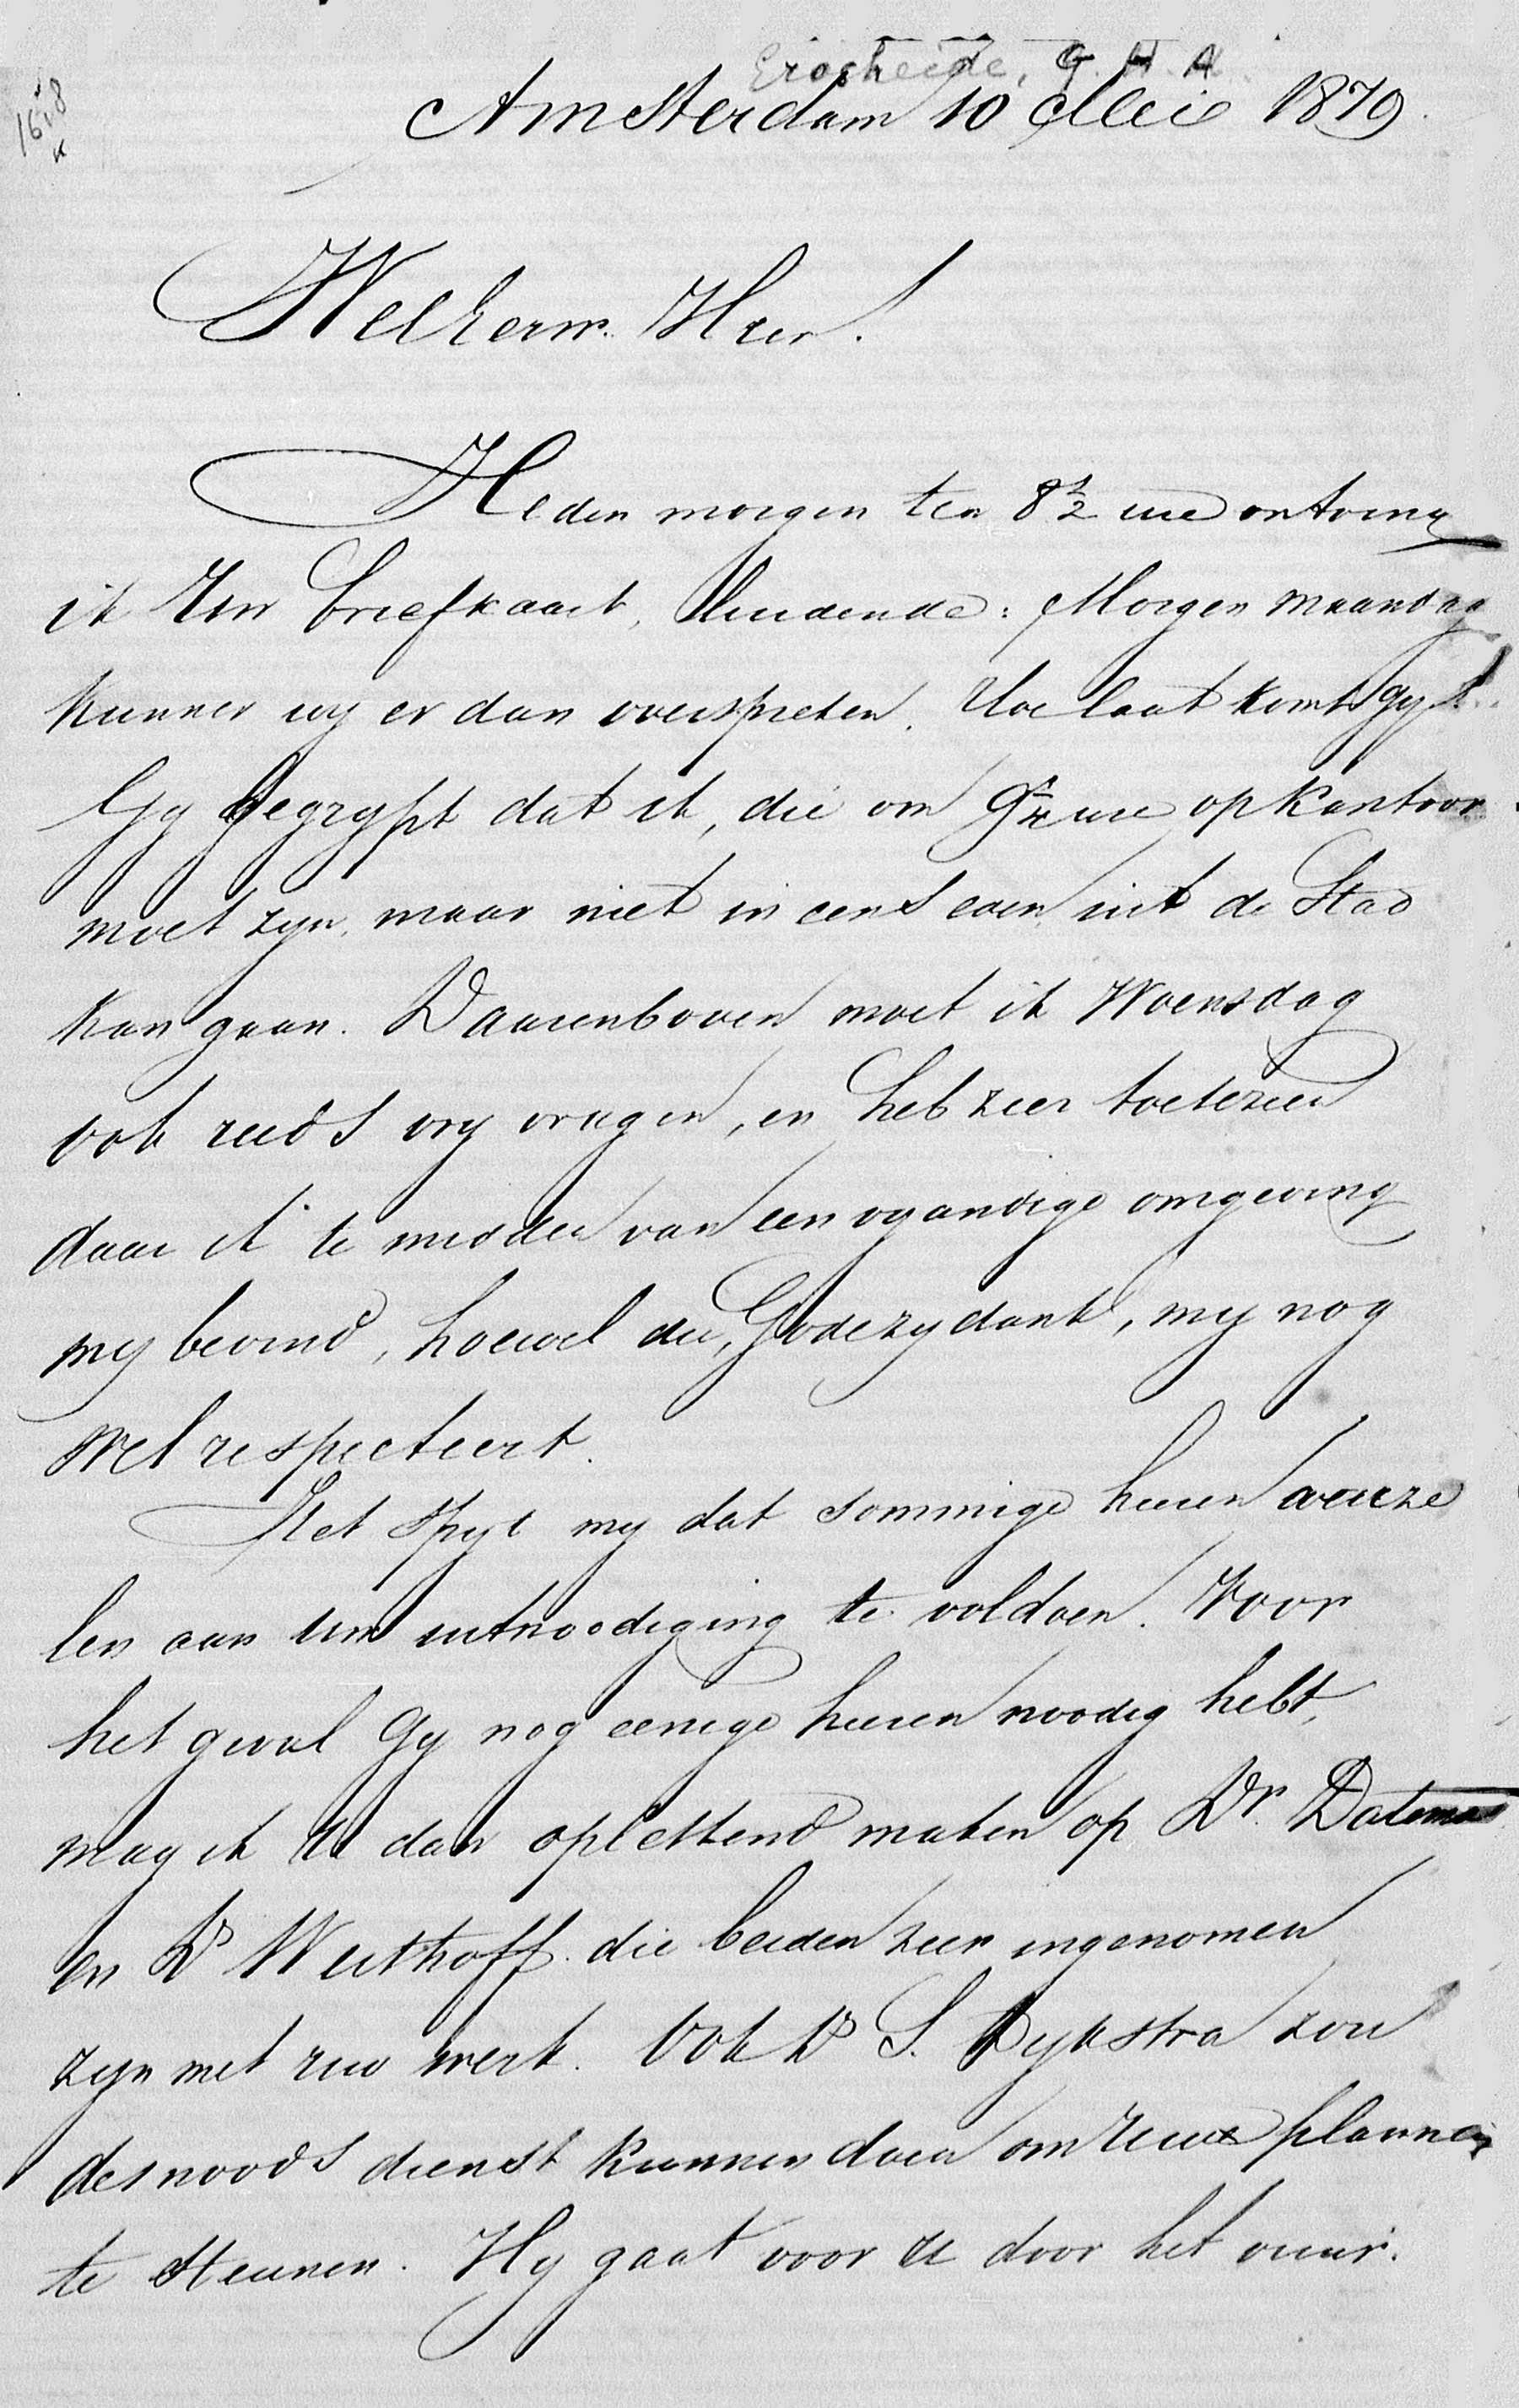 G. H. A.
1618
K
Amsterdam 10 Mei 1879.
WelEerw. Heer!
Heden morgen ten 8½ ure ontving
ik Uw briefkaart, luidende: Morgen maandag
kunnen wy er dan overspreken. Hoe laat komt gy?
Gy begrypt dat ik, die om 9¼ ure op kantoor
moet zyn, maar niet in eens even uit de Stad
kan gaan. Daarenboven moet ik Woensdag
ook reeds vry vragen, en heb zeer toetezien
daar ik te midden van een vyandige omgeving
my bevind, hoewel die, Gode zy dank, my nog
wel respecteert.
Het spyt my dat sommige heeren aarze
len aan uw uitnoodiging te voldoen. Voor
het geval Gy nog eenige heeren noodig hebt,
mag ik U dan oplettend maken op Dr.
en Ds Westhoff. die beiden zeer ingenomen
zyn met uw werk. Ook Ds S. Dykstra zou
desnoods dienst kunnen doen om Uwe plannen
te steunen. Hy gaat voor U door het vuur.